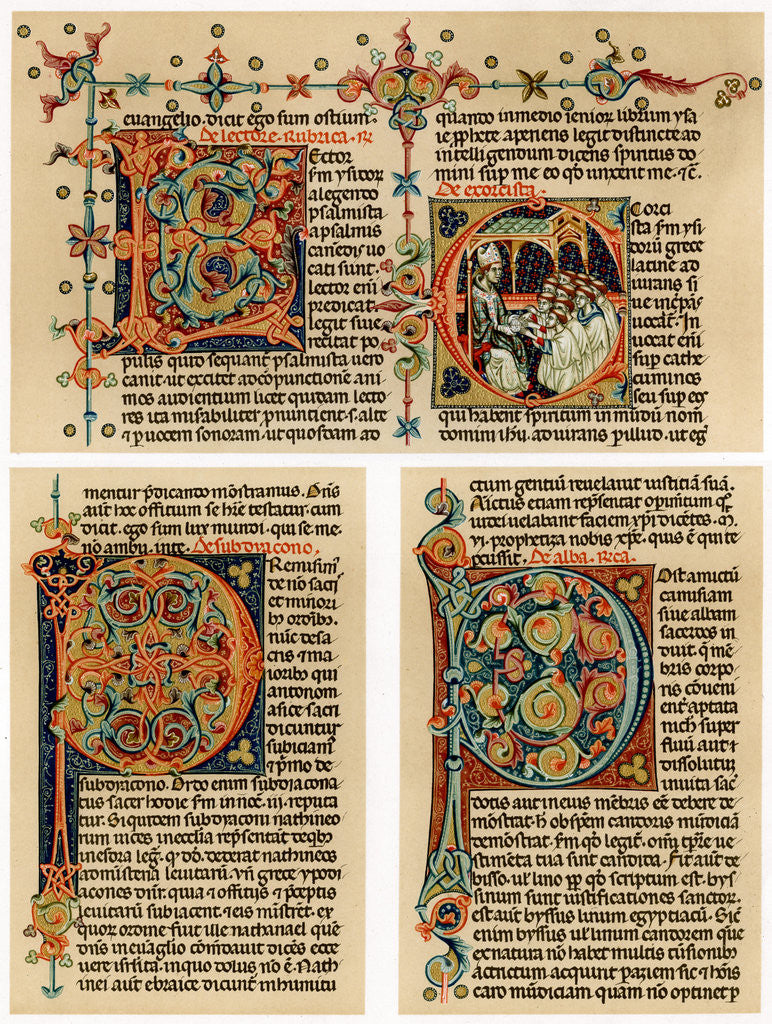 euangelio. dicit ego sum ostium.
De lectore. Rubrica. R
Lector
s̄m ysitor
a legendo
psalmista
a psalmis
canēdis uo
cati sunt.
lector eni
predicat.
legit siue
recitat po
pulis quid sequant psalmista uero
canit ut excitet ad cōpunctionē ani
mos audientium licet quidam lecto
res ita misabiliter pnuntient. s. alte
⁊ p uocem sonoram. ut quosdam ad
quando in medio
librum ysa
ie pphete aperiens legit distincte ad
intelligendum dicens spiritus do
mini sup me eo qd unxerit me. ⁊c̄.
De exorcista.
Exorci
sta s̄m ysi
dorū grece
latine ad
iurans si
ue incpās
uocat. In
uocat eni
sup cathe
cuminos
seu sup eos
qui habent spiritum inmūdū nom̄
domini ihu. adiurans p illud. ut eg
mentur pdicando mōstramus. Dn̄s
aut hoc offitium se hr̄e testatur. cum
dicit. ego sum lux mundi. qui se. me.
nō ambu. in te. De subdiacono.
Premissis
de nō sacri
et minori
bȝ ordibȝ.
nūc de sa
cris ⁊ ma
ioribȝ qui
antonom
asice sacri
dicuntur
subiciam̄
⁊ pmo de
subdiacono. Ordo enim subdiacona
tus sacer hodie s̄m innoc̄. iii. reputa
tur. Siquidem subdiaconi nathineo
rum uices in ecclia repn̄tant de qbȝ
in esdra leg̃. qd
dederat nathineos
ad mīsteria leuitarū. Vn̄ grece ypodi
acones dn̄r. quia ⁊ offitiis ⁊ pceptis
leuitarū subiacent. ⁊ eis mīstret. ex
quor ordine fuit ille nathanael quē
dn̄s in euāglio cōmdauit dicēs ecce
uere isrl̄ita. in quo dolus nō ē. Nath
inei aut ebraice dicunt in humitu
ctum gentiū reuelauit iustitiā suā.
Amictus etiam repn̄tat opimtum q
iudei uelabant faciem xpi dicētes. m̄.
vi. prophetiza nobis xpe. quis ē qui te
pcussit. De alba. Rica.
Post amictū
camisiam
siue albam
sacerdos in
duit. q mē
bris corpo
ris cōueni
ent aptata
nichil super
fluū aut ⁊
dissolutū
in uita sac
dotis aut in eius mēbris eē debere de
mōstrat. h ob spēm candoris mūdiciā
demōstrat. s̄m qd legit. omi tpre ue
stimēta tua sint candida. Fit aut de
bisso. ul lino pp qd scriptum est. bys
sinum sunt iustificationes sanctor.
est aut byssus linum egyptiacū. Sic̄
enim byssus ul linum candorem que
ex natura nō habet multis tūsionibȝ
actrictum acqunt p aziem sic ⁊ hōis
caro mūdiciam quam nō optinet p